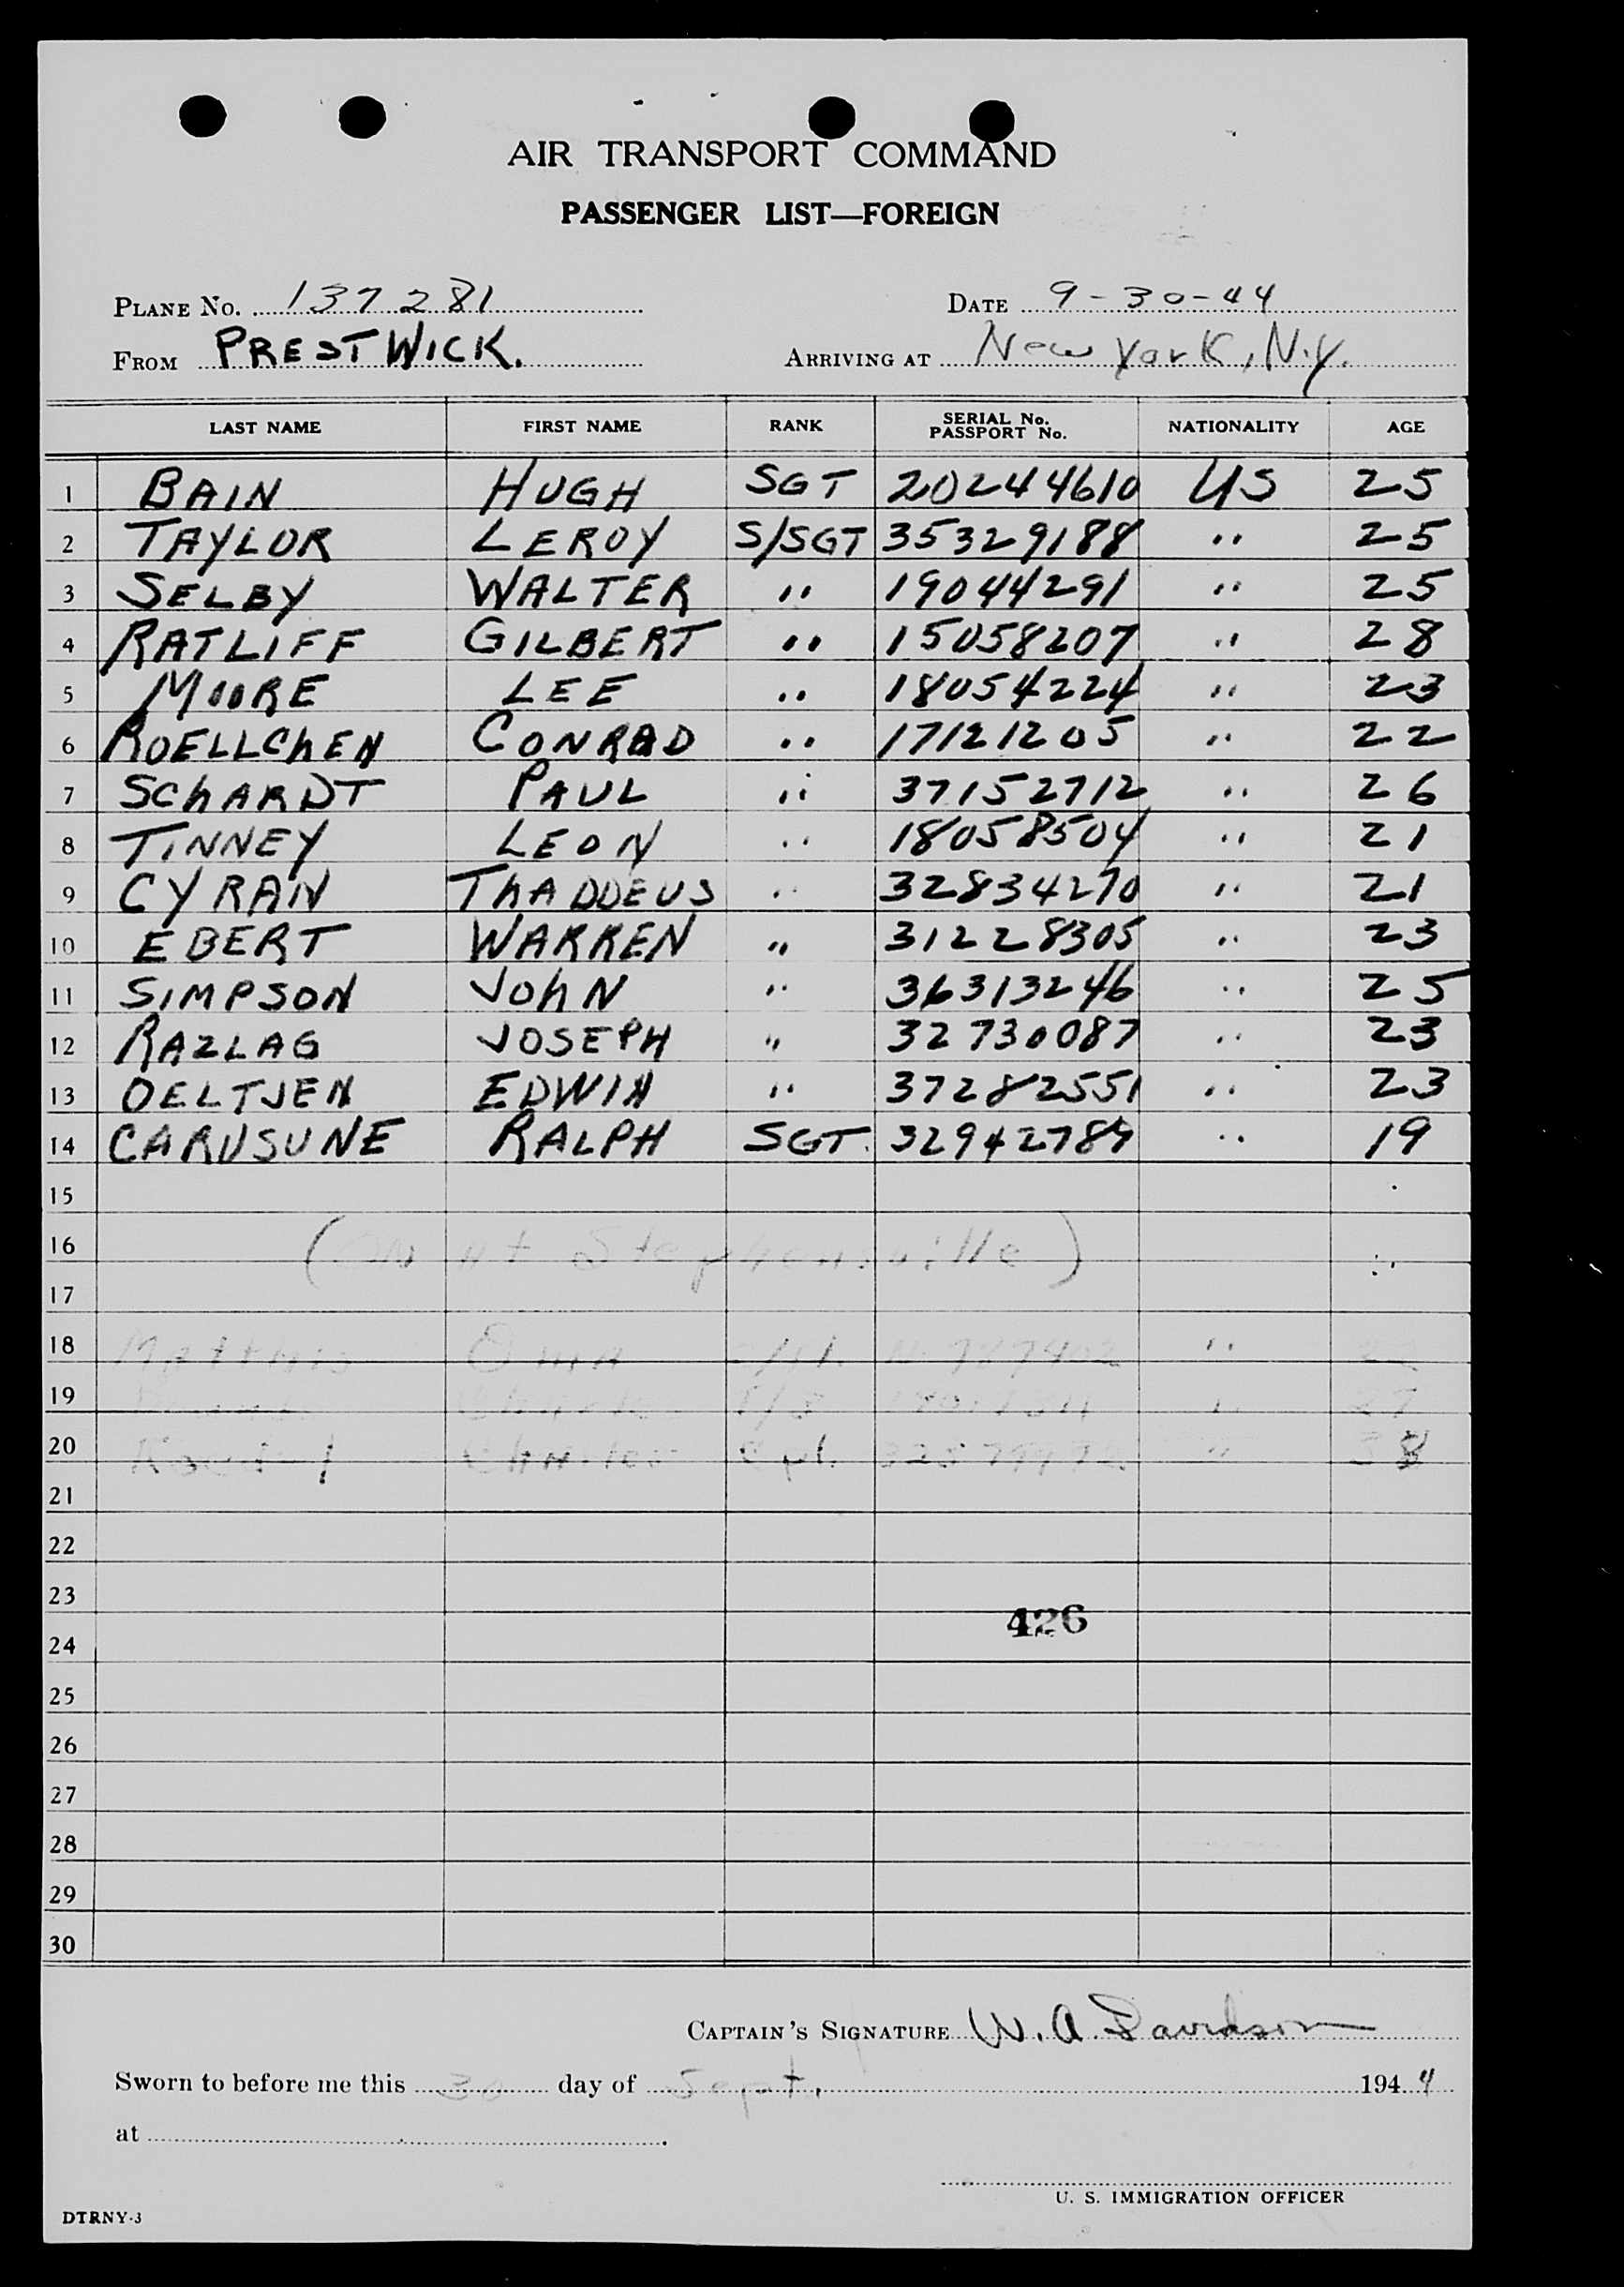 AIR TRANSPORT COMMAND
PASSENGER LIST—FOREIGN
PLANE No. 137281 DATE 9-30-44
FROM PRESTWICK. ARRIVING AT New York, N.Y.
LAST NAME FIRST NAME RANK SERIAL No. PASSPORT No. NATIONALITY AGE
1 BAIN HUGH SGT 20244610 US 25
2 TAYLOR LEROY S/SGT 35329188 " 25
3 SELBY WALTER " 19044291 " 25
4 RATLIFF GILBERT " 15058207 " 28
5 MOORE LEE " 18054224 " 23
6 ROELLCHEN CONRAD " 17121205 " 22
7 SCHARDT PAUL " 37152712 " 26
8 TINNEY LEON " 18058504 " 21
9 CYRAN THADDEUS " 32834270 " 21
10 EBERT WARREN " 31228305 " 23
11 SIMPSON JOHN " 36313246 " 25
12 RAZLAG JOSEPH " 32730087 " 23
13 OELTJEN EDWIN " 37282551 " 23
14 CARUSUNE RALPH SGT. 32942789 " 19
15
16 (On at Stephensville)
17
18 "
19 "
20 Cpl. "
21
22
23
426
24
25
26
27
28
29
30
CAPTAIN'S SIGNATURE W. A. Davidson
Sworn to before me this 30 day of Sept. 1944
at
U. S. IMMIGRATION OFFICER
DTRNY-3